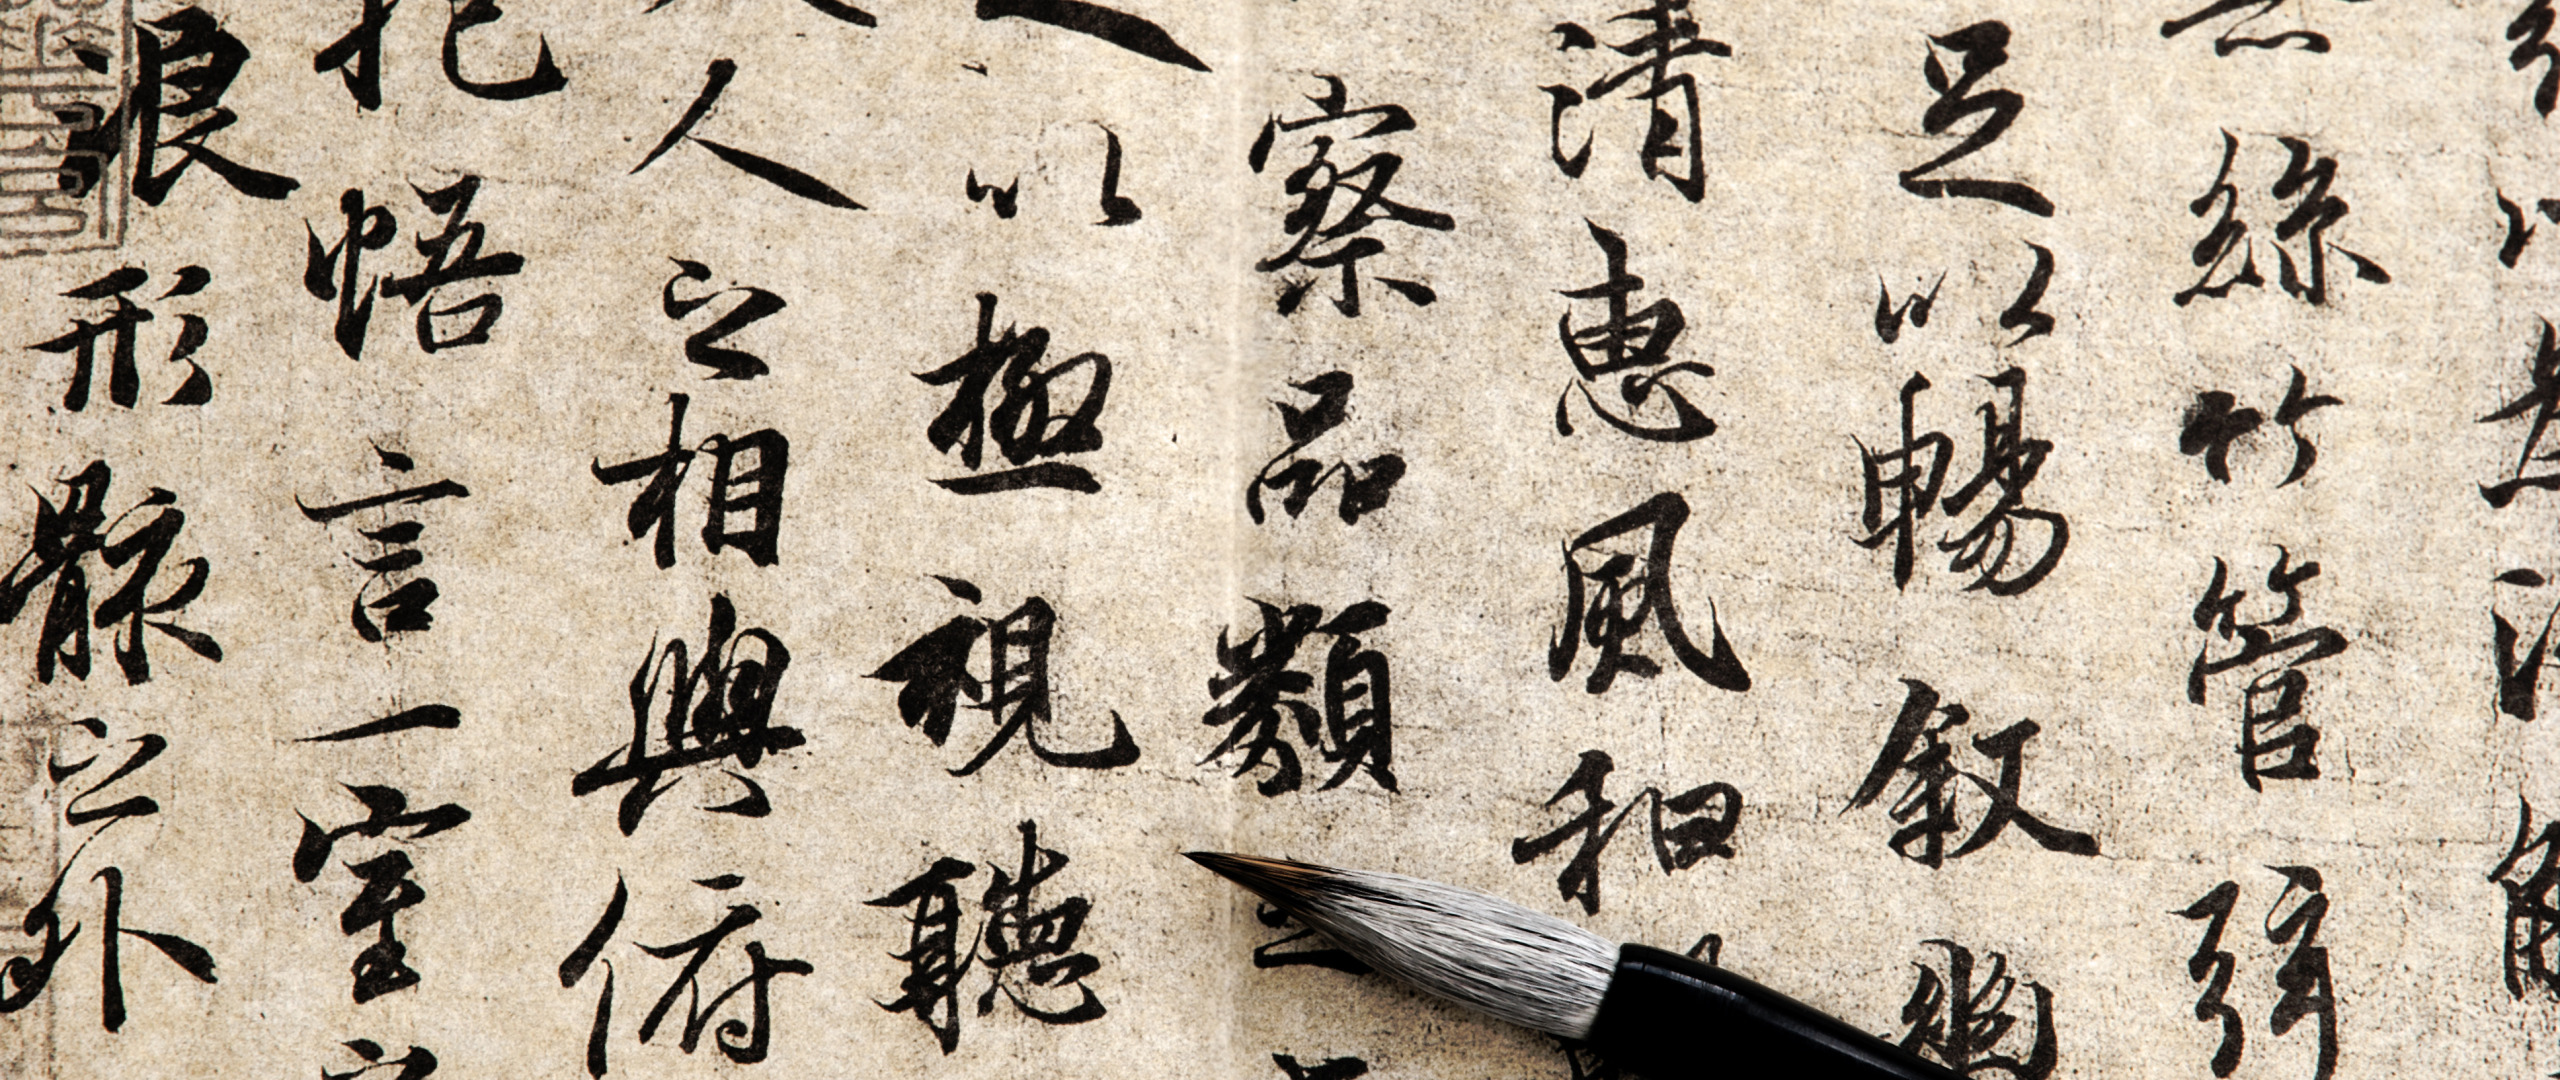 絲竹管弦
足以暢敘幽
清惠風和
察品類
以極視聽
人之相與俯
抱悟言一室
浪形骸之外